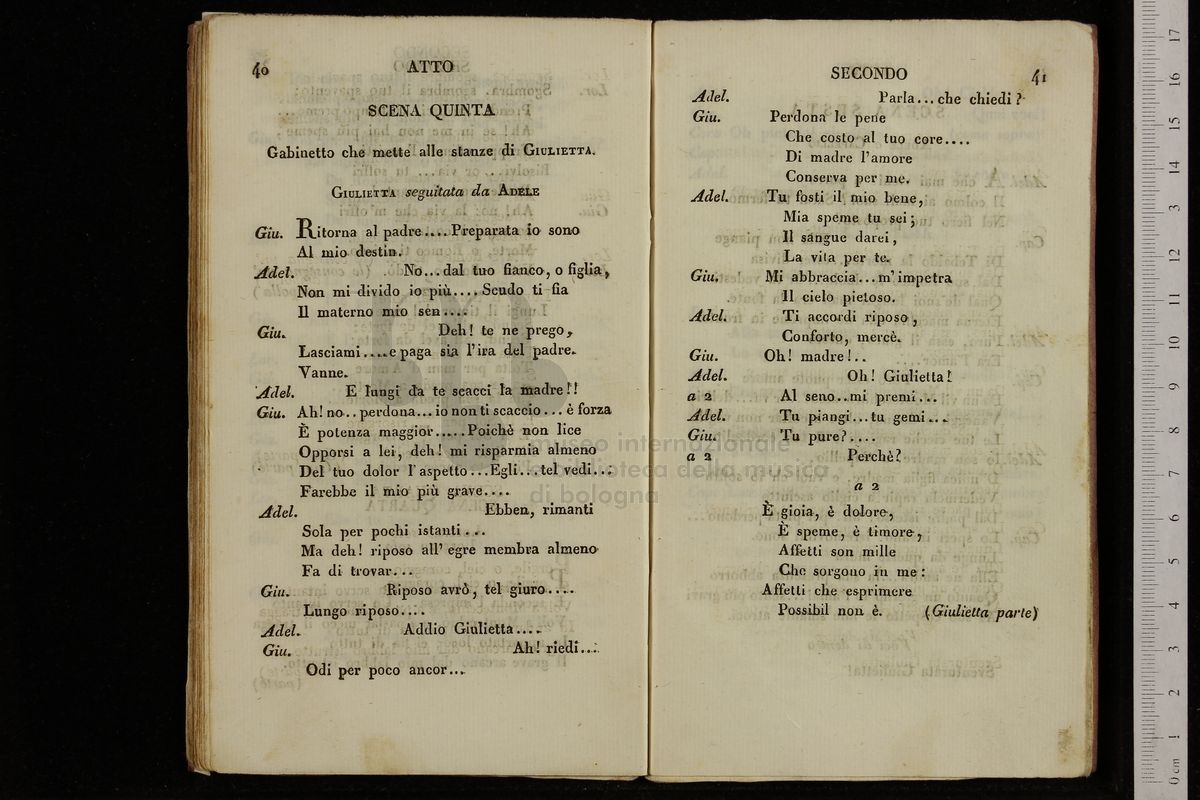 40
ATTO
SCENA QUINTA
Gabinetto che mette alle stanze di GIULIETTA.
GIULIETTA seguitata da ADELE
Giu. Ritorna al padre....Preparata io sono
Al mio destin.
Adel. No...dal tuo fianco, o figlia,
Non mi divido io più.... Scudo ti fia
Il materno mio sen....
Giu. Deh! te ne prego,
Lasciami....e paga sia l'ira del padre.
Vanne.
Adel. E lungi da te scacci la madre!!
Giu. Ah! no.. perdona... io non ti scaccio... è forza
È potenza maggior.....Poichè non lice
Opporsi a lei, deh! mi risparmia almeno
Del tuo dolor l'aspetto...Egli...tel vedi...
Farebbe il mio più grave....
Adel. Ebben, rimanti
Sola per pochi istanti...
Ma deh! riposo all' egre membra almeno
Fa di trovar...
Giu. Riposo avrò, tel giuro....
Lungo riposo....
Adel. Addio Giulietta....
Giu. Ah! riedi...
Odi per poco ancor...
SECONDO
41
Adel. Parla...che chiedi?
Giu. Perdona le pene
Che costo al tuo core....
Di madre l'amore
Conserva per me.
Adel. Tu fosti il mio bene,
Mia speme tu sei;
Il sangue darei,
La vita per te.
Giu. Mi abbraccia...m'impetra
Il cielo pietoso.
Adel. Ti accordi riposo,
Conforto, mercè.
Giu. Oh! madre!..
Adel. Oh! Giulietta!
a 2 Al seno..mi premi...
Adel. Tu piangi...tu gemi...
Giu. Tu pure?....
a 2 Perchè?
a 2
È gioia, è dolore,
È speme, è timore,
Affetti son mille
Che sorgono in me:
Affetti che esprimere
Possibil non è. (Giulietta parte)
museo internazionale
biblioteca della musica
di bologna
0 cm 1 2 3 4 5 6 7 8 9 10 11 12 13 14 15 16 17